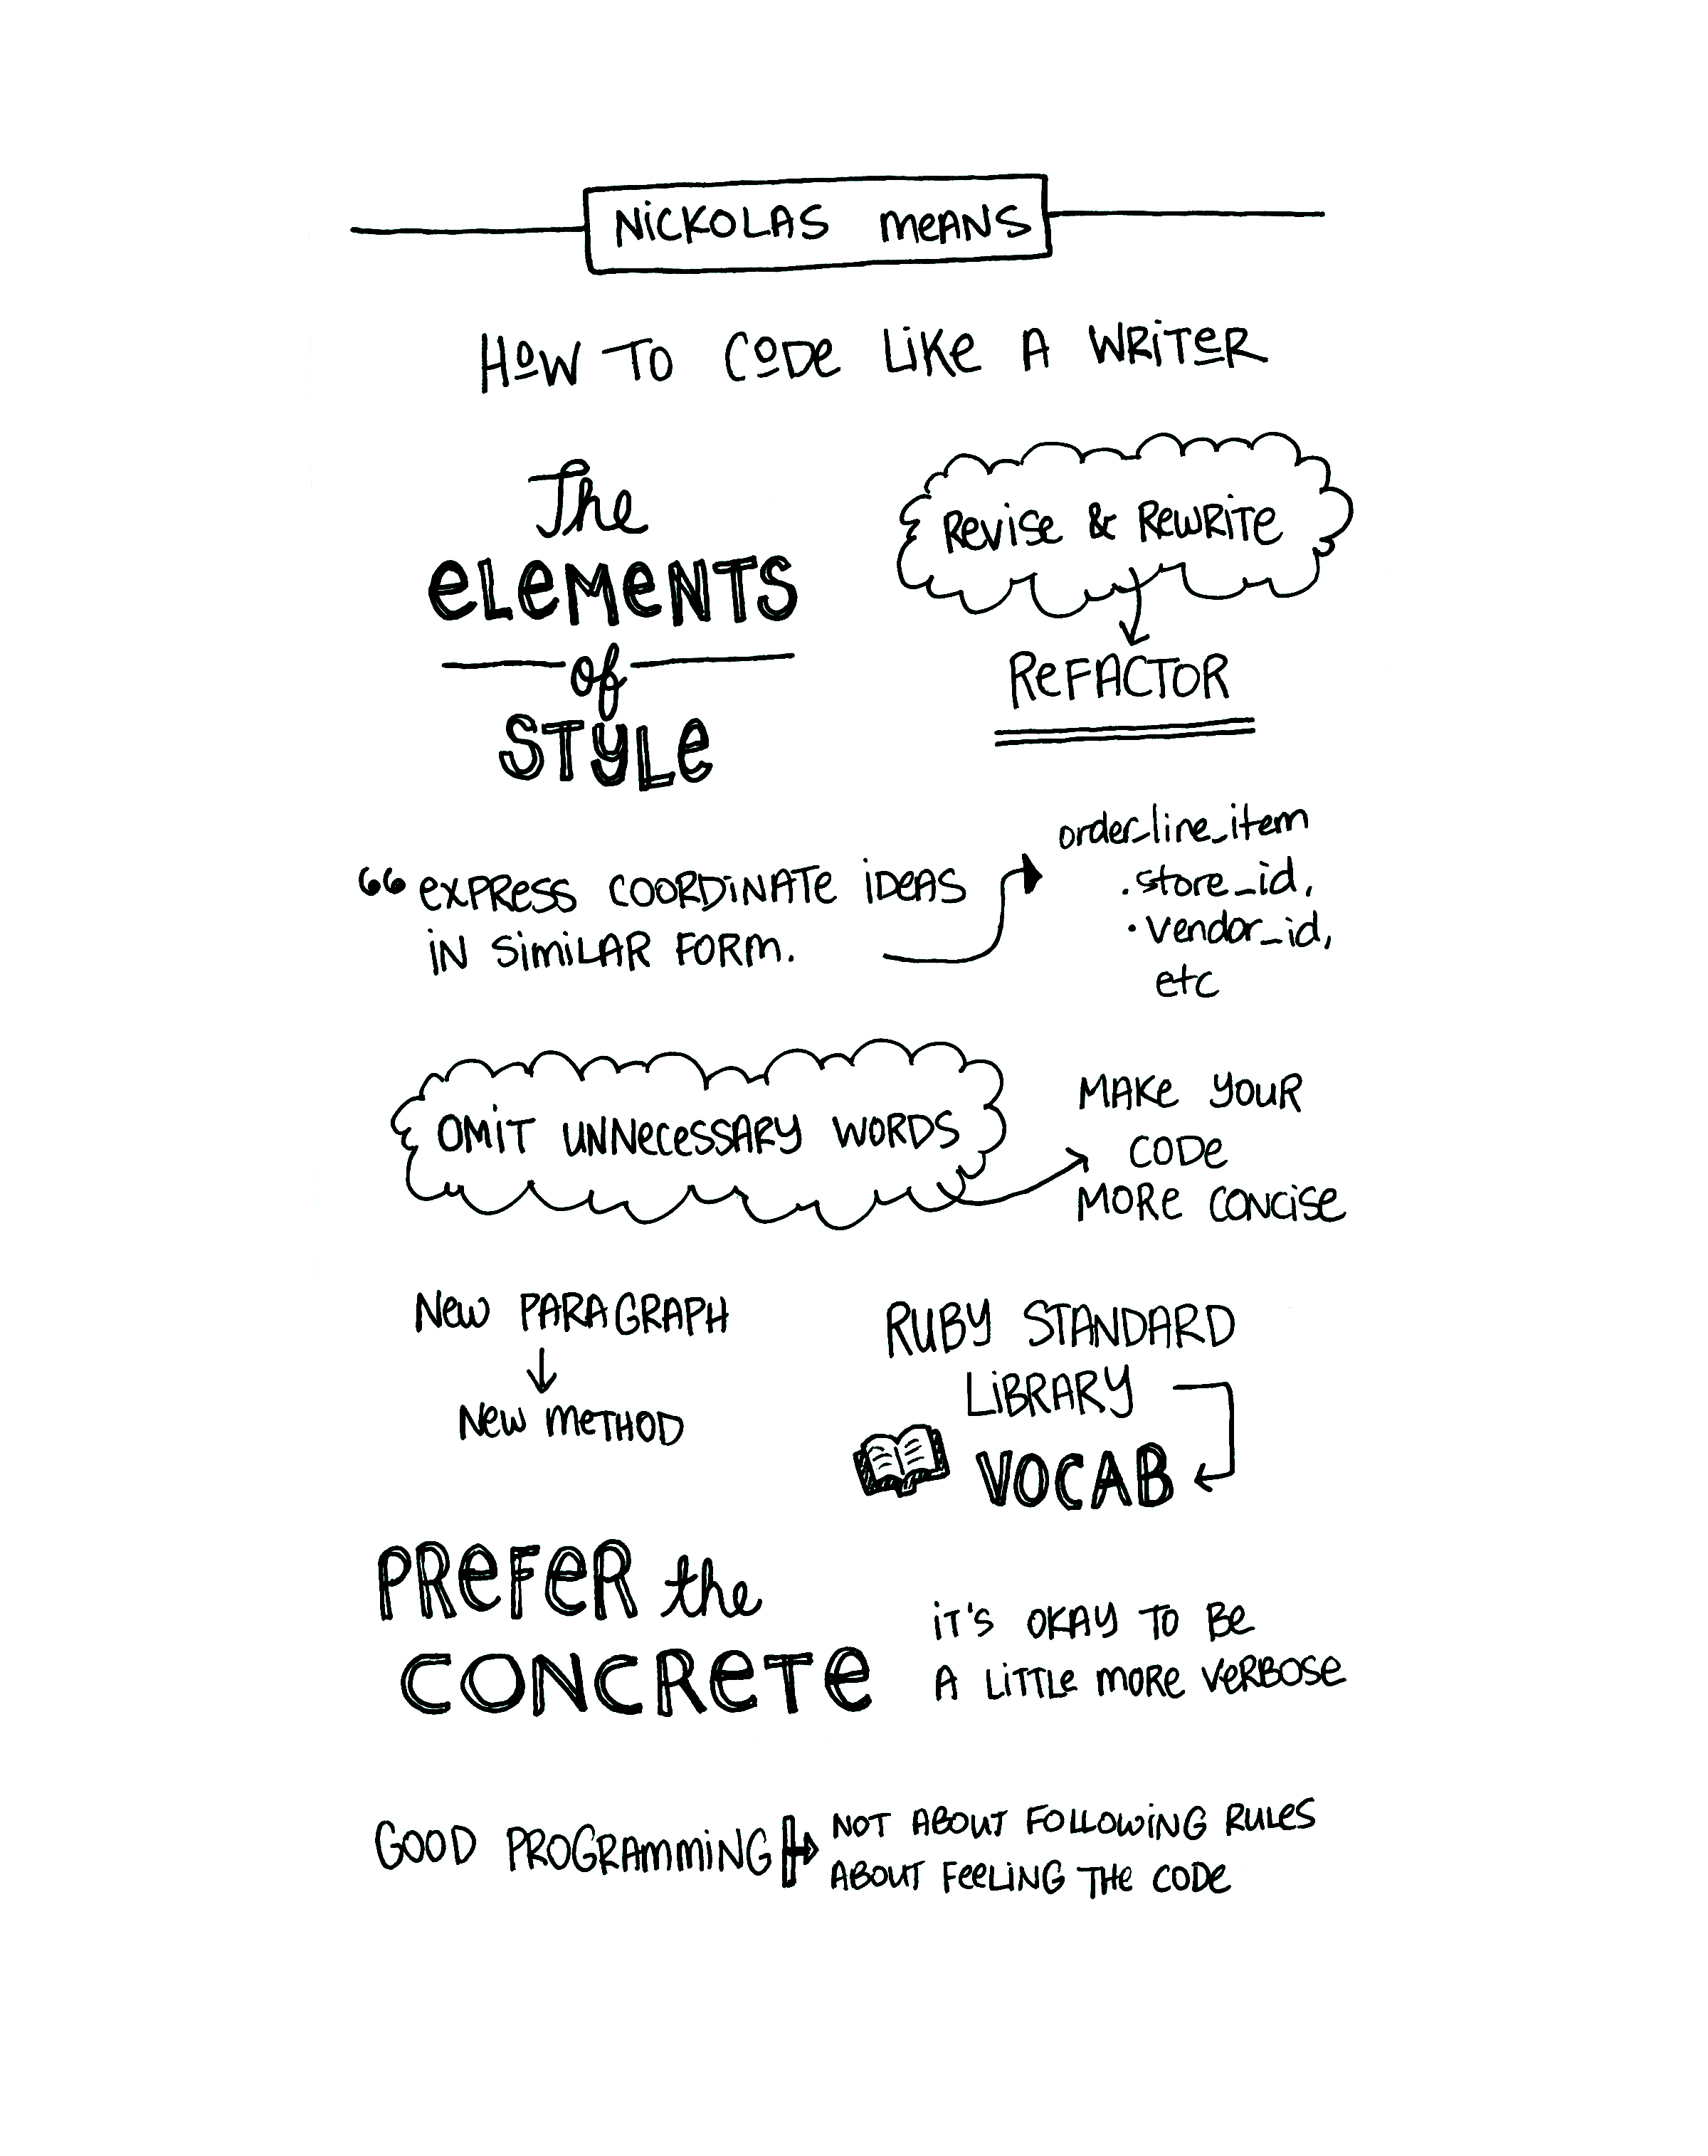 NiCKOLAS MeANS
HOW TO CODe LiKe A WRiTeR
The
eLeMeNTS
of
STYLe
Revise & ReWRiTe
ReFACTOR
“ exPRess COORDiNATe iDeAS
iN SiMiLAR FORM.
order_line_item
.store_id,
.vendor_id,
etc
OMiT UNNeceSSARY WORDS
MAKe YOUR
CODe
MORe CONCiSe
New PARAGRAPH
↓
New MeTHOD
RUBY STANDARD
LiBRARY
VOCAB
PReFeR the
CONCReTe
iT'S OKAY TO Be
A LiTTLe MORe VeRBOSe
GOOD PROGRAMMiNG
NOT ABOUT FOLLOWiNG RULeS
ABOUT FeeLiNG THe CODe